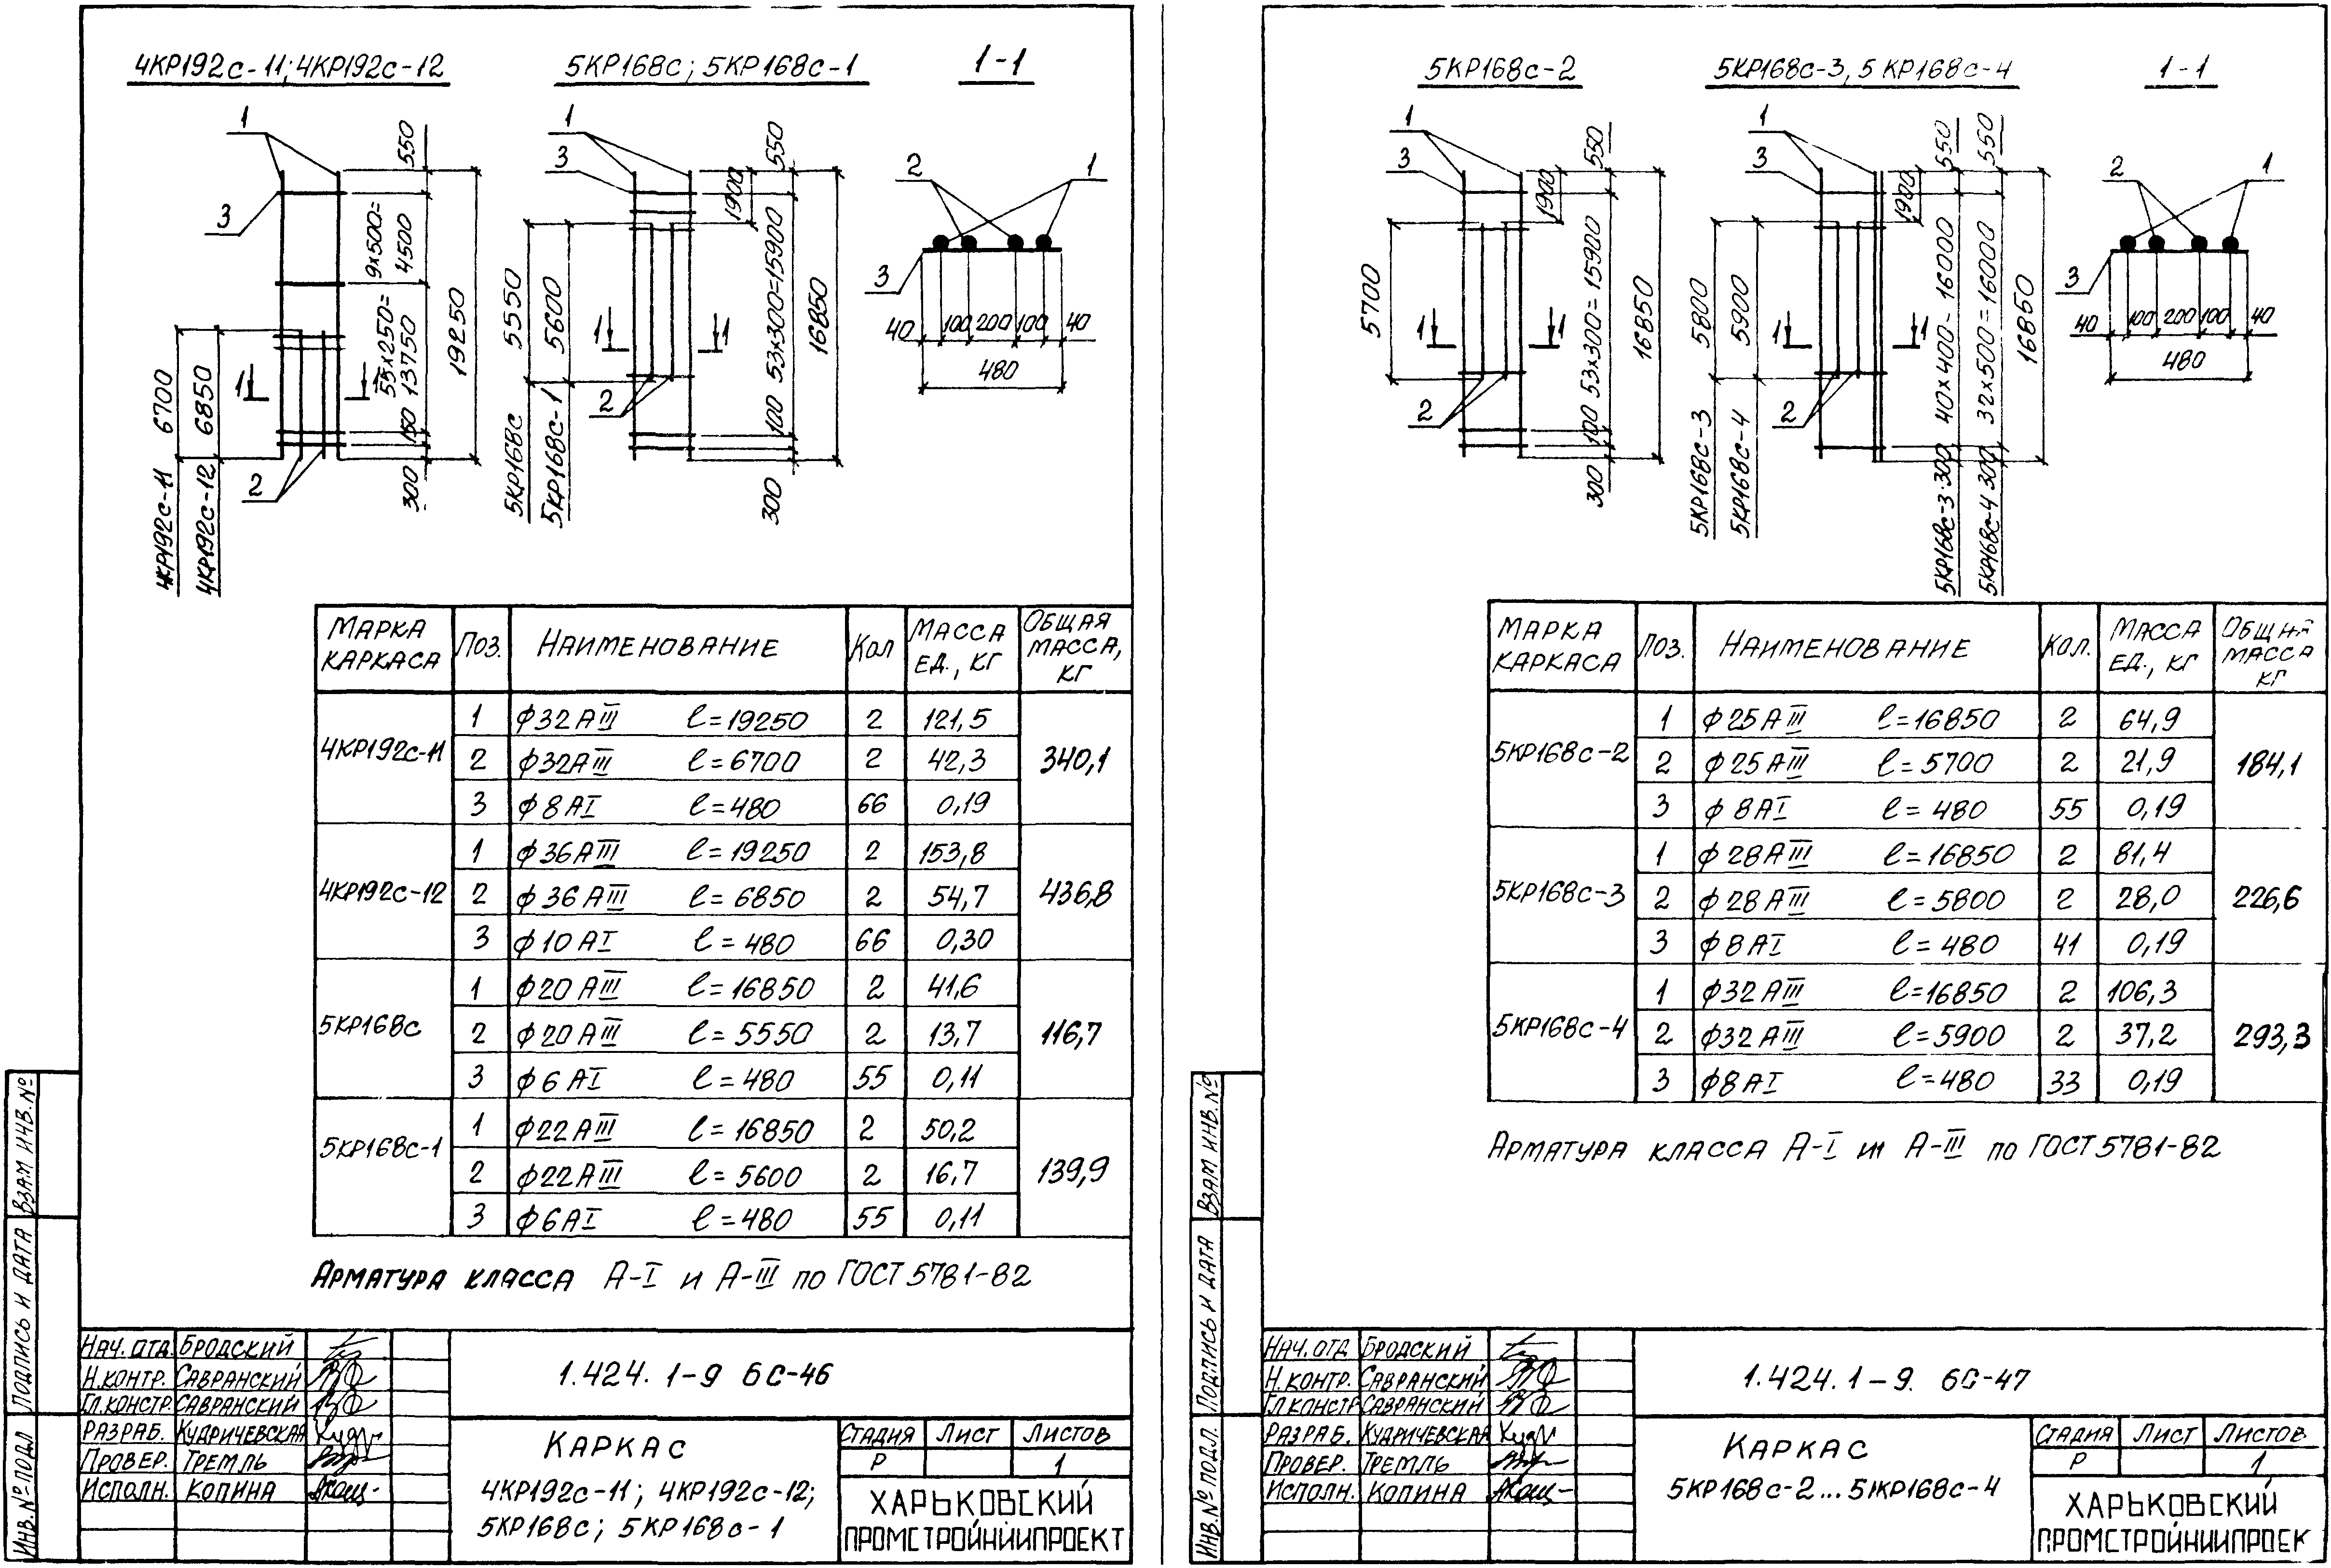 4КР192с-11; 4КР192с-12
5КР168с; 5КР168с-1
1-1
1
3
2
550
9х500=
4500
55х250=
13750
150
300
19250
6700
6850
4КР192с-11
4КР192с-12
1
1
1
3
2
550
1900
53х300=15900
100
300
16850
5550
5600
5КР168с
5КР168с-1
1
1
2
1
3
40
100
200
100
40
480
МАРКА КАРКАСА
ПОЗ.
НАИМЕНОВАНИЕ
КОЛ
МАССА ЕД., КГ
ОБЩАЯ МАССА, КГ
4КР192с-11
1 ϕ32АIII ℓ=19250 2 121,5
2 ϕ32АIII ℓ=6700 2 42,3 340,1
3 ϕ8АI ℓ=480 66 0,19
4КР192с-12
1 ϕ36АIII ℓ=19250 2 153,8
2 ϕ36АIII ℓ=6850 2 54,7 436,8
3 ϕ10АI ℓ=480 66 0,30
5КР168с
1 ϕ20АIII ℓ=16850 2 41,6
2 ϕ20АIII ℓ=5550 2 13,7 116,7
3 ϕ6АI ℓ=480 55 0,11
5КР168с-1
1 ϕ22АIII ℓ=16850 2 50,2
2 ϕ22АIII ℓ=5600 2 16,7 139,9
3 ϕ6АI ℓ=480 55 0,11
АРМАТУРА КЛАССА А-I И А-III ПО ГОСТ 5781-82
НАЧ. ОТД. БРОДСКИЙ
Н.КОНТР. САВРАНСКИЙ
ГЛ.КОНСТР. САВРАНСКИЙ
РАЗРАБ. КУДРИЧЕВСКАЯ
ПРОВЕР. ТРЕМЛЬ
ИСПОЛН. КОПИНА
1.424.1-9 6с-46
КАРКАС
4КР192с-11; 4КР192с-12;
5КР168с; 5КР168с-1
СТАДИЯ ЛИСТ ЛИСТОВ
Р 1
ХАРЬКОВСКИЙ
ПРОМСТРОЙНИИПРОЕКТ
ИНВ.№ ПОДЛ
ПОДПИСЬ И ДАТА
ВЗАМ ИНВ.№
5КР168с-2
5КР168с-3, 5КР168с-4
1-1
1
3
2
550
1900
53х300=15900
100
300
16850
5700
1
1
1
3
2
550
550
1900
5КР168с-3 300 40х400-16000
5КР168с-4 300 32х500=16000
16850
5800
5900
5КР168с-3
5КР168с-4
1
1
2
1
3
40
100
200
100
40
480
МАРКА КАРКАСА
ПОЗ.
НАИМЕНОВАНИЕ
КОЛ.
МАССА ЕД., КГ
ОБЩАЯ МАССА КГ
5КР168с-2
1 ϕ25АIII ℓ=16850 2 64,9
2 ϕ25АIII ℓ=5700 2 21,9 184,1
3 ϕ8АI ℓ=480 55 0,19
5КР168с-3
1 ϕ28АIII ℓ=16850 2 81,4
2 ϕ28АIII ℓ=5800 2 28,0 226,6
3 ϕ8АI ℓ=480 41 0,19
5КР168с-4
1 ϕ32АIII ℓ=16850 2 106,3
2 ϕ32АIII ℓ=5900 2 37,2 293,3
3 ϕ8АI ℓ=480 33 0,19
АРМАТУРА КЛАССА А-I И А-III ПО ГОСТ 5781-82
НАЧ. ОТД БРОДСКИЙ
Н.КОНТР. САВРАНСКИЙ
ГЛ.КОНСТР САВРАНСКИЙ
РАЗРАБ. КУДРИЧЕВСКАЯ
ПРОВЕР. ТРЕМЛЬ
ИСПОЛН. КОПИНА
1.424.1-9. 6с-47
КАРКАС
5КР168с-2...5КР168с-4
СТАДИЯ ЛИСТ ЛИСТОВ
Р 1
ХАРЬКОВСКИЙ
ПРОМСТРОЙНИИПРОЕК
ИНВ.№ ПОДЛ.
ПОДПИСЬ И ДАТА
ВЗАМ ИНВ.№